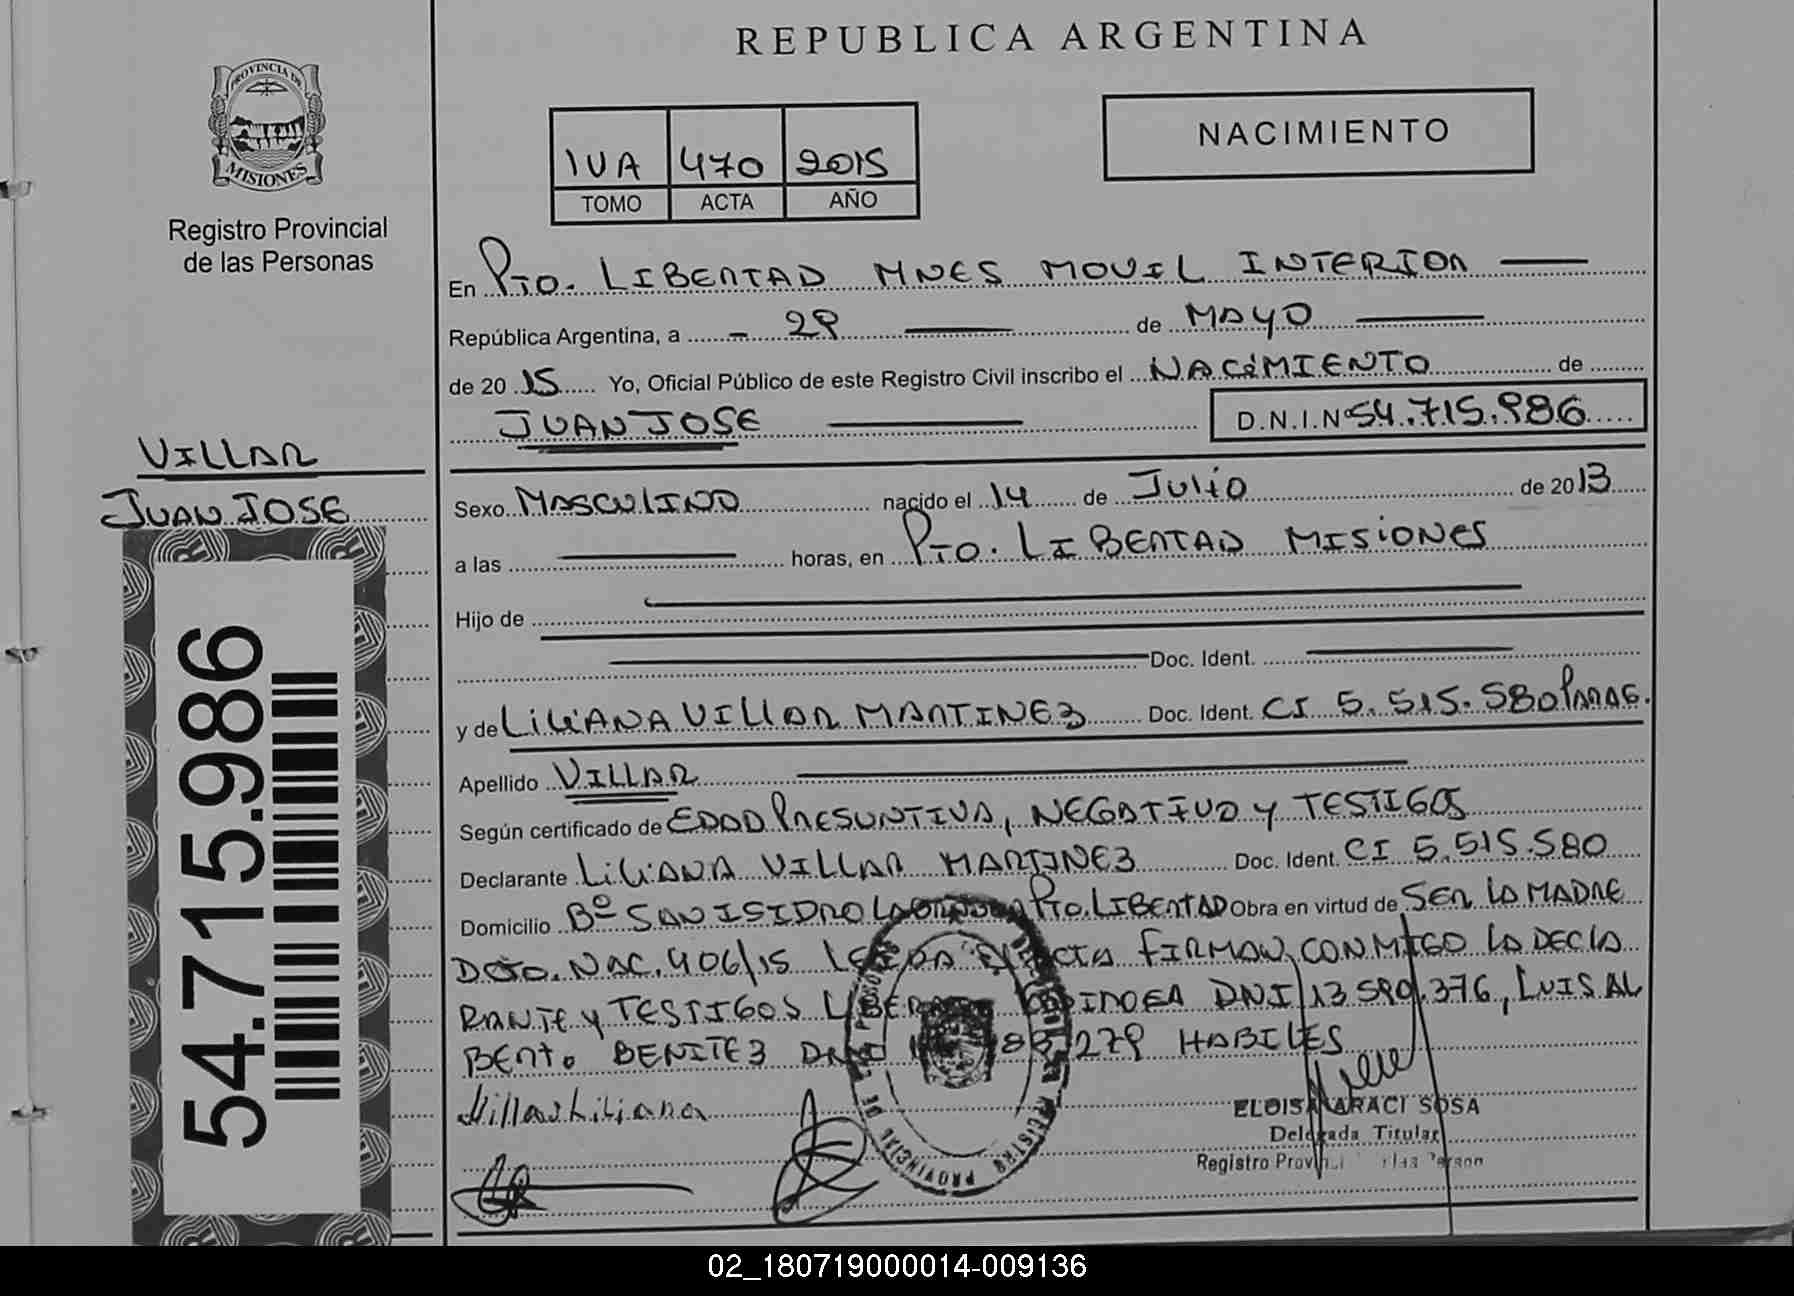 REPUBLICA ARGENTINA
PROVINCIA DE
MISIONES
Registro Provincial
de las Personas
IVA 470 2015
TOMO ACTA AÑO
NACIMIENTO
En Pto. LIBERTAD MNES MOVIL INTERIOR
República Argentina, a 29 de MAYO
de 2015 Yo, Oficial Público de este Registro Civil inscribo el NACiMIENTO de
JUAN JOSE D.N.I.Nº 54.715.986
VILLAR
JUAN JOSE
54.715.986
Sexo MASCULINO nacido el 14 de Julio de 2013
a las horas, en Pto. LIBERTAD MISiONES
Hijo de
Doc. Ident.
y de LiLiANA VILLAR MARTINEZ Doc. Ident. CI 5.515.580 PARAG.
Apellido VILLAR
Según certificado de EDAD PRESUNTIVA, NEGATIVO y TESTIGOS
Declarante LiLiANA VILLAR MARTINEZ Doc. Ident. CI 5.515.580
Domicilio Bº SAN ISIDRO Pto. LIBERTAD Obra en virtud de SER LA MADRE
NAC. 406/15 LEIDA EL ACTA FIRMAN CONMIGO LA DECLA
RANTE y TESTIGOS DNI 13.590.376, LUIS AL
BERTO BENITEZ DNI 279 HABILES
Villar Liliana
ELOISA ARACI SOSA
Delegada Titular
Registro Provincial de las Person
REGISTRO PROVINCIAL DE LAS PERSONAS
02_180719000014-009136